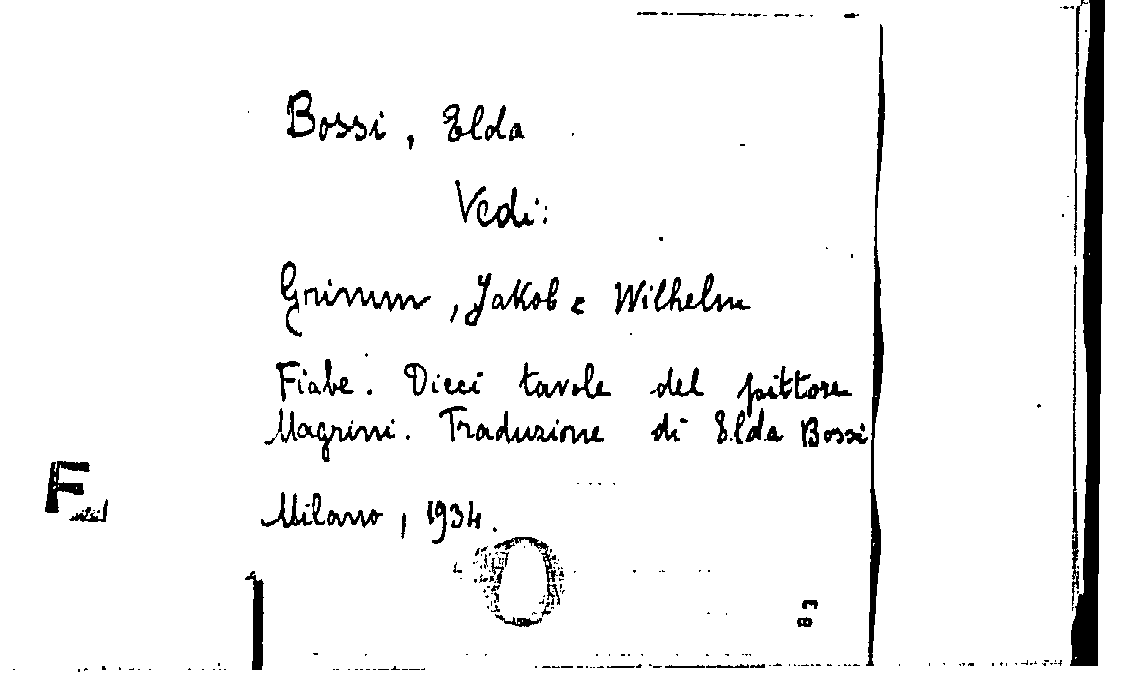 Bossi, Elda
Vedi:
Grimm, Jakob e Wilhelm
Fiabe. Dieci tavole del pittore
Magrini. Traduzione di Elda Bossi
Milano, 1934.
F